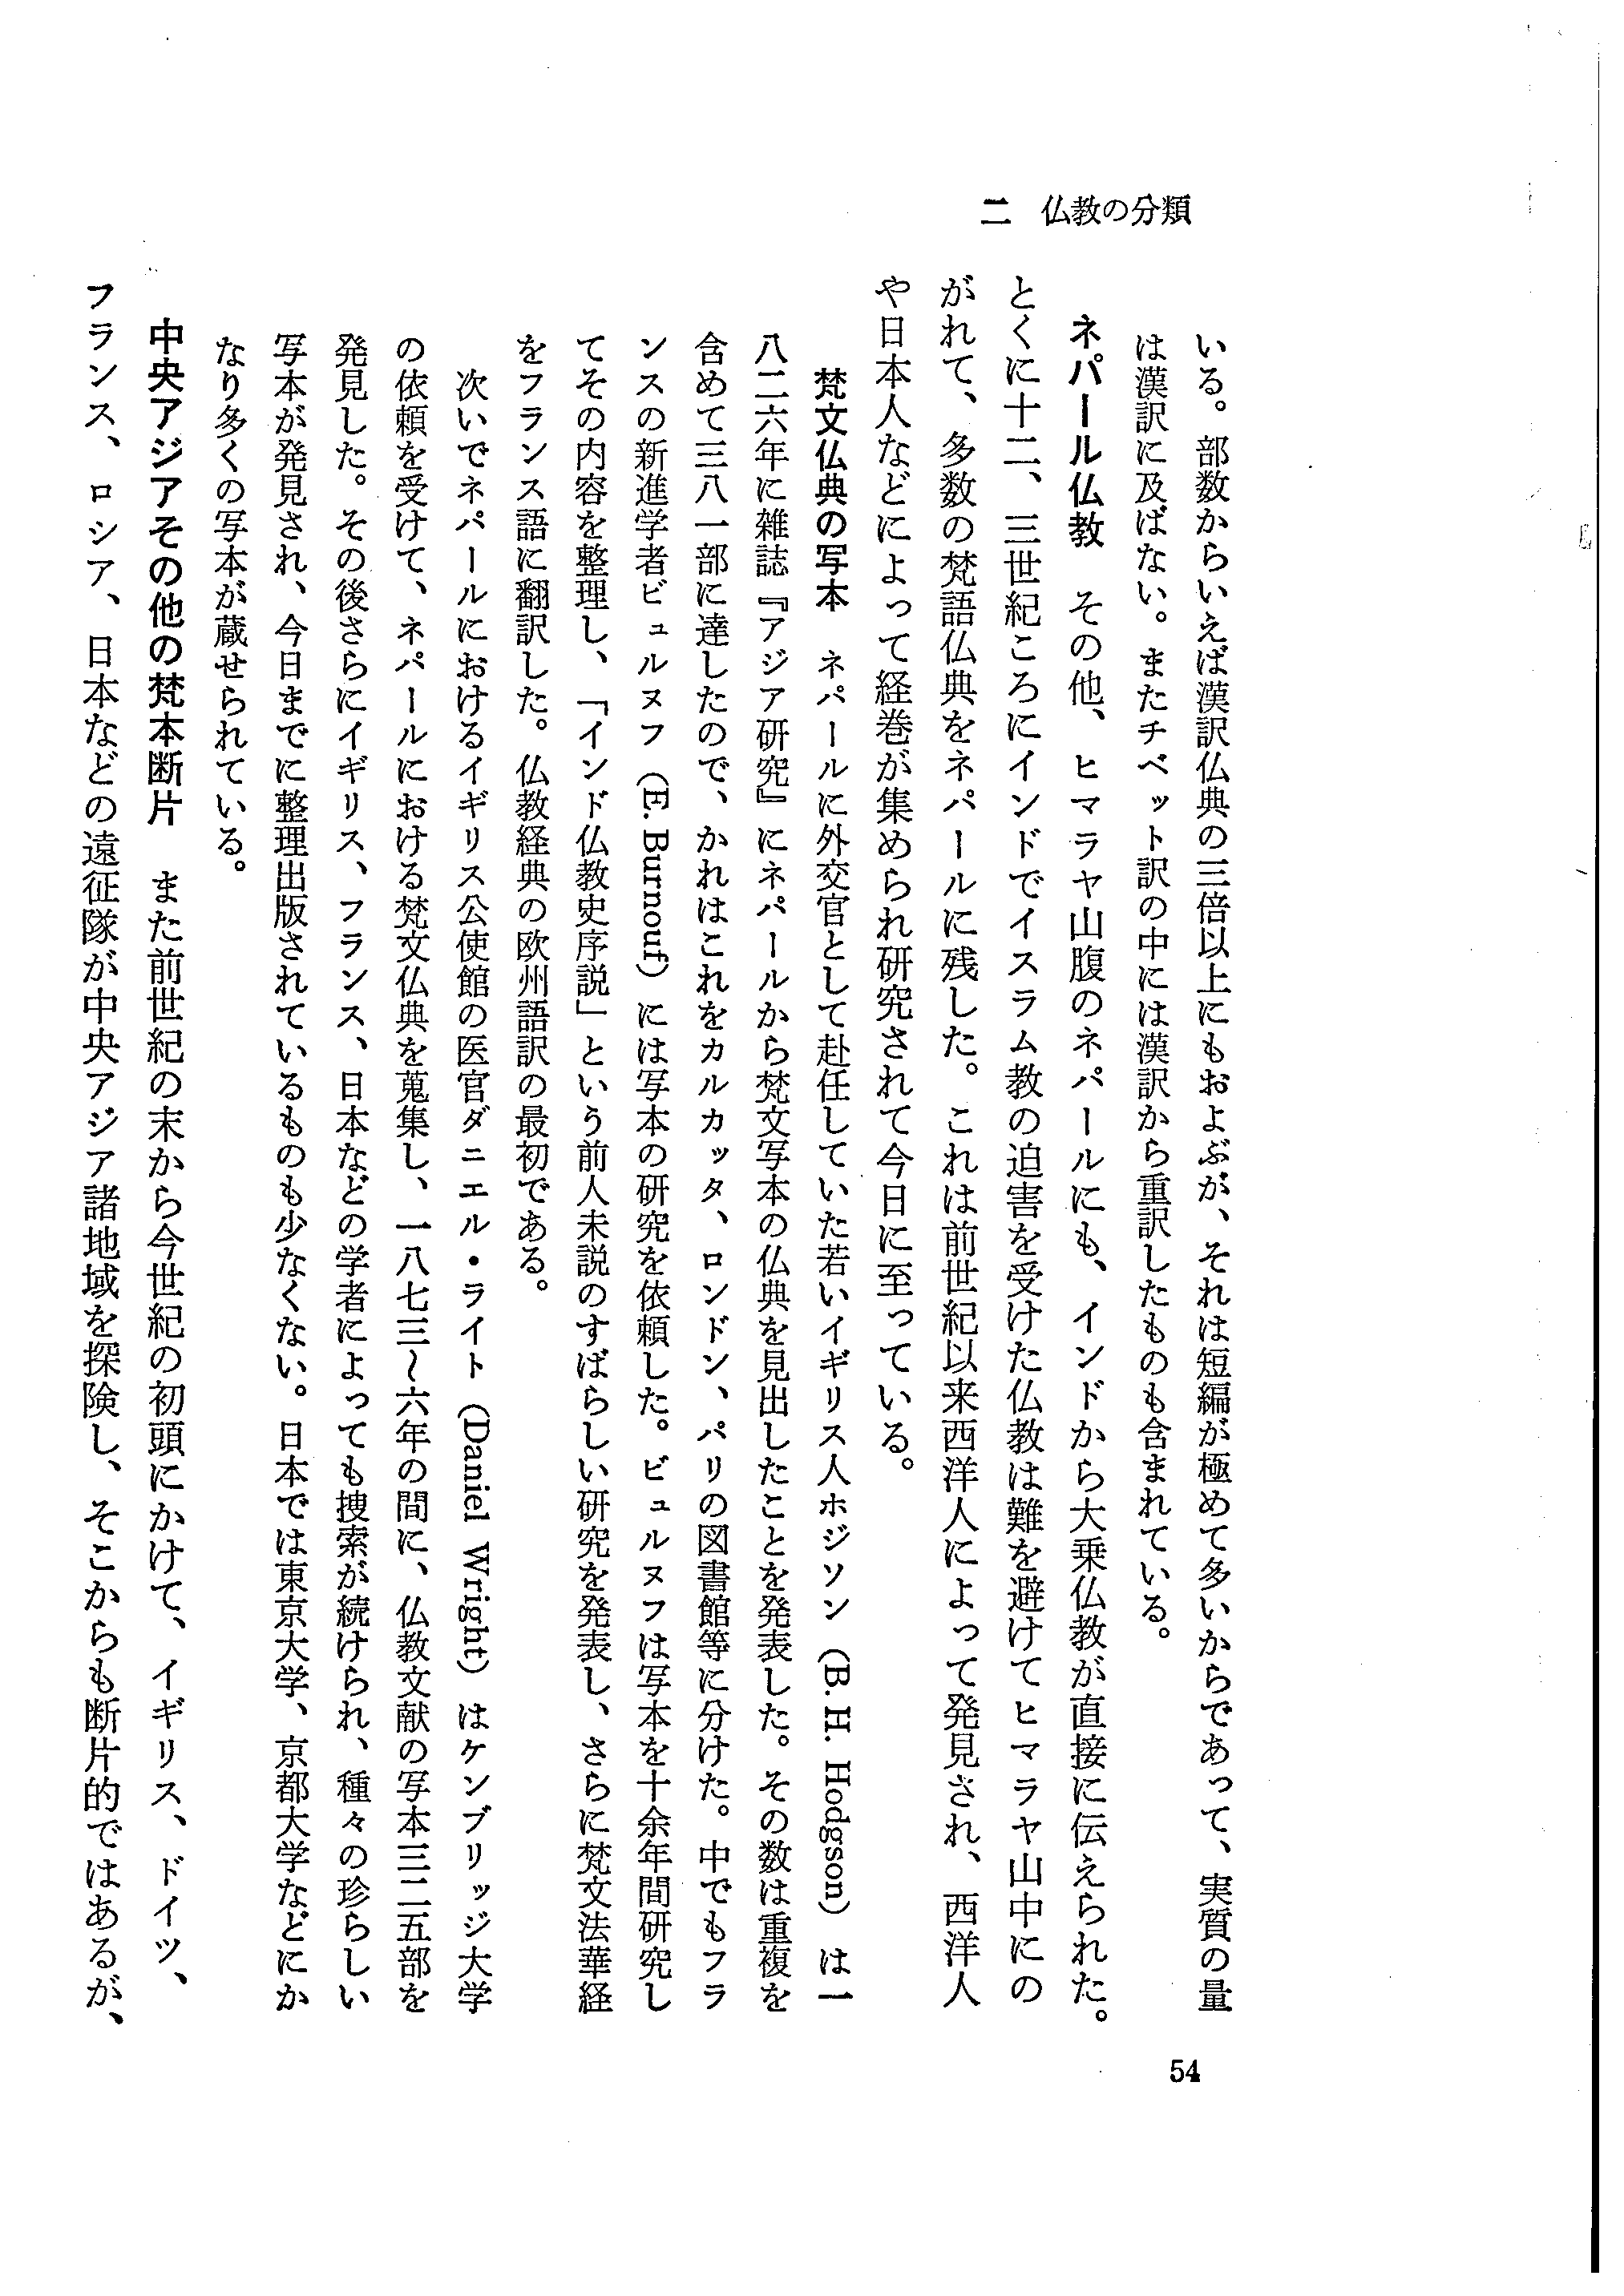 二 仏教の分類
いる。部数からいえば漢訳仏典の三倍以上にもおよぶが、それは短編が極めて多いからであって、実質の量
は漢訳に及ばない。またチベット訳の中には漢訳から重訳したものも含まれている。
ネパール仏教 その他、ヒマラヤ山腹のネパールにも、インドから大乗仏教が直接に伝えられた。
とくに十二、三世紀ころにインドでイスラム教の迫害を受けた仏教は難を避けてヒマラヤ山中にの
がれて、多数の梵語仏典をネパールに残した。これは前世紀以来西洋人によって発見され、西洋人
や日本人などによって経巻が集められ研究されて今日に至っている。
梵文仏典の写本 ネパールに外交官として赴任していた若いイギリス人ホジソン（B. H. Hodgson）は一
八二六年に雑誌『アジア研究』にネパールから梵文写本の仏典を見出したことを発表した。その数は重複を
含めて三八一部に達したので、かれはこれをカルカッタ、ロンドン、パリの図書館等に分けた。中でもフラ
ンスの新進学者ビュルヌフ（E. Burnouf）には写本の研究を依頼した。ビュルヌフは写本を十余年間研究し
てその内容を整理し、「インド仏教史序説」という前人未説のすばらしい研究を発表し、さらに梵文法華経
をフランス語に翻訳した。仏教経典の欧州語訳の最初である。
次いでネパールにおけるイギリス公使館の医官ダニエル・ライト（Daniel Wright）はケンブリッジ大学
の依頼を受けて、ネパールにおける梵文仏典を蒐集し、一八七三〜六年の間に、仏教文献の写本三二五部を
発見した。その後さらにイギリス、フランス、日本などの学者によっても捜索が続けられ、種々の珍らしい
写本が発見され、今日までに整理出版されているものも少なくない。日本では東京大学、京都大学などにか
なり多くの写本が蔵せられている。
中央アジアその他の梵本断片 また前世紀の末から今世紀の初頭にかけて、イギリス、ドイツ、
フランス、ロシア、日本などの遠征隊が中央アジア諸地域を探険し、そこからも断片的ではあるが、
54